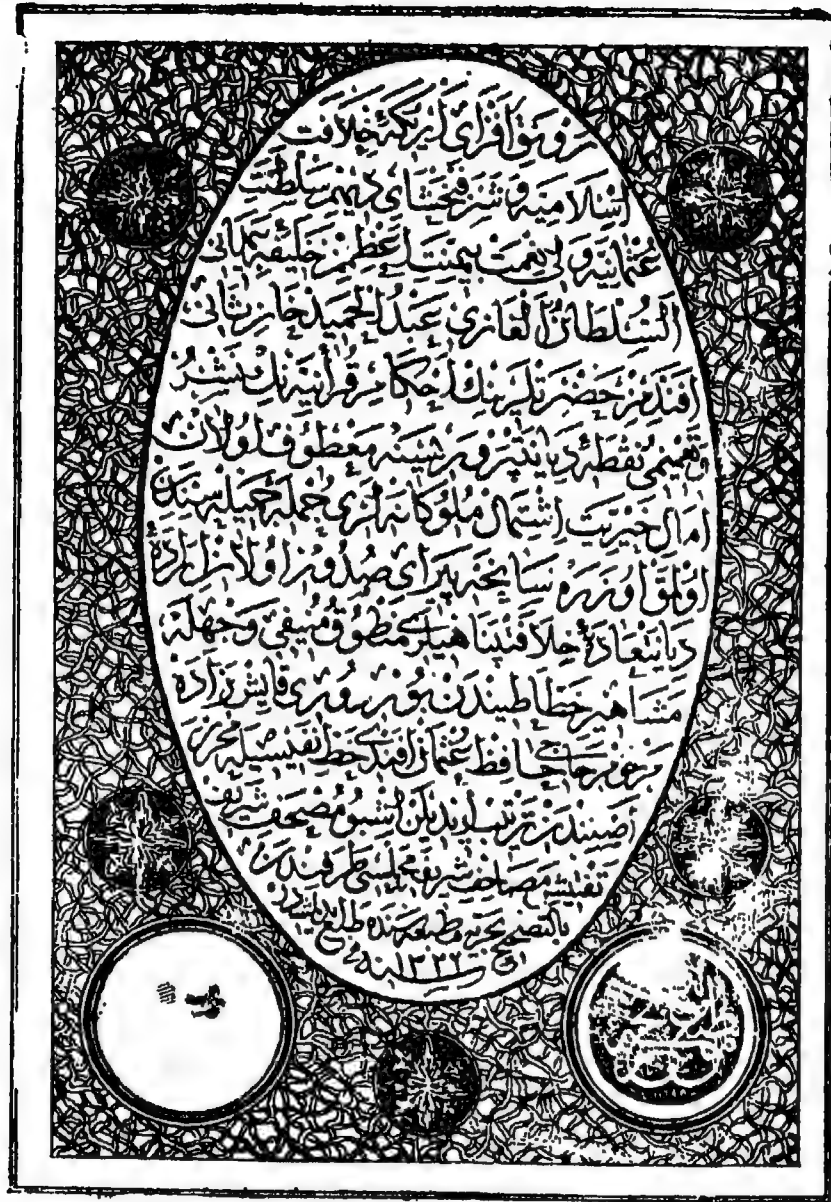 رونق افزاى اريكهٔ خلافت
اسلاميه و شرفبخشاى ديهيم سلطنت
عثمانيه ولى نعمت بيمنت اعظم خليفهٔ
السلطان الغازى عبد الحميد خان ثانى
افندمز حضرتلرينك احكام قرآنيه نك نشر
و تعميمى نقطهٔ ديانتپرورىسنه معطوف اولان
امال خيريت اشتمال ملوكانه لرى جملهٔ جميله سندن
اولمق اوزره سانحه پيراى صدور اولان ارادهٔ
ديانتعادهٔ خلافتپناهيلرى منطوق منيفى وجهله
مشاهير خطاطيندن بوردورى قايش زاده
مرحوم حاجى حافظ عثمان افندى خط نفيسيله محرر
اصلندن ترتيب ايديلن اشبو مصحف شريف
تفتيش مصاحف شريفه مجلسى طرفندن
بالتصحيح بحريه مطبعه سنده طبع
سنه